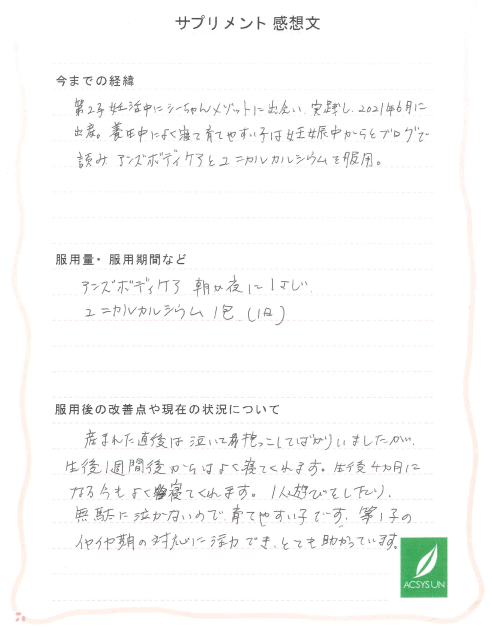 サプリメント 感想文
今までの経緯
第2子妊活中にシーちゃんメソッドに出会い、実践し、2021年6月に
出産。養田中によく寝て育てやすい子は妊娠中からとブログで
読み アンズボディケアとユニカルカルシウムを服用。
服用量・服用期間など
アンズボディケア 朝か夜に1さじ
ユニカルカルシウム 1包 (1日)
服用後の改善点や現在の状況について
産まれた直後は泣いて抱っこしてばかりいましたが、
生後1週間後からはよく寝てくれます。生後4カ月に
なる今もよく寝てくれます。1人遊びをしたり、
無駄に泣かないので、育てやすい子です。第1子の
イヤイヤ期の対応に注力でき、とても助かっています。
ACSYSUN